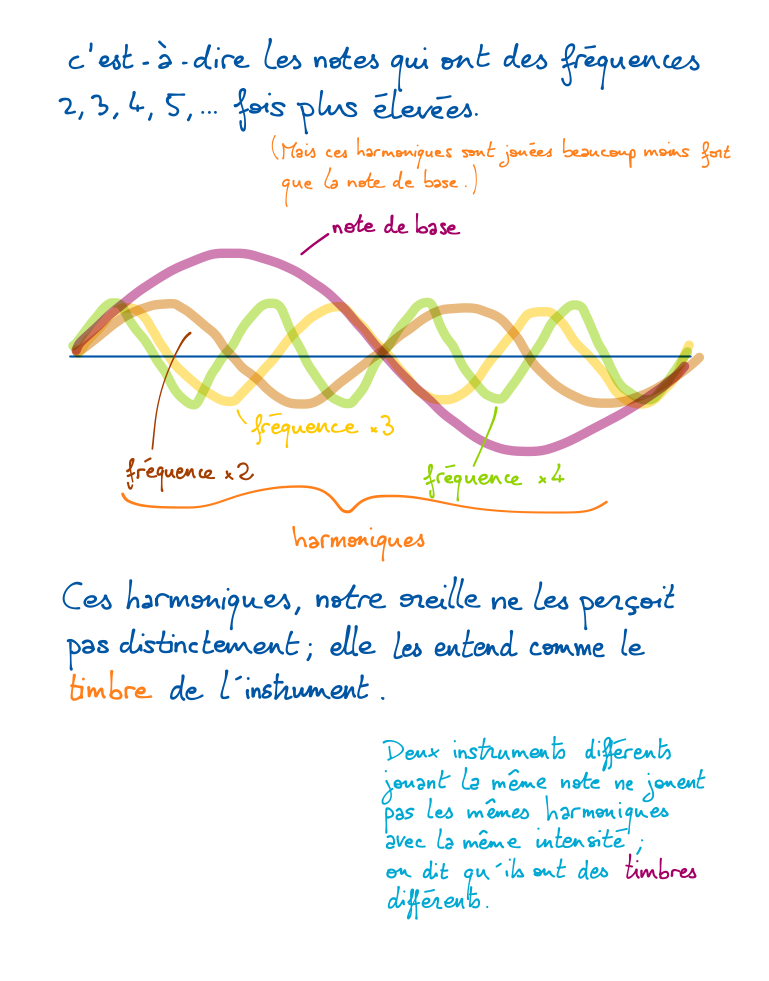 c'est-à-dire les notes qui ont des fréquences
2, 3, 4, 5, ... fois plus élevées.
(Mais ces harmoniques sont jouées beaucoup moins fort
que la note de base.)
note de base
fréquence ×3
fréquence ×2
fréquence ×4
harmoniques
Ces harmoniques, notre oreille ne les perçoit
pas distinctement ; elle les entend comme le
timbre de l'instrument.
Deux instruments différents
jouant la même note ne jouent
pas les mêmes harmoniques
avec la même intensité ;
on dit qu'ils ont des timbres
différents.